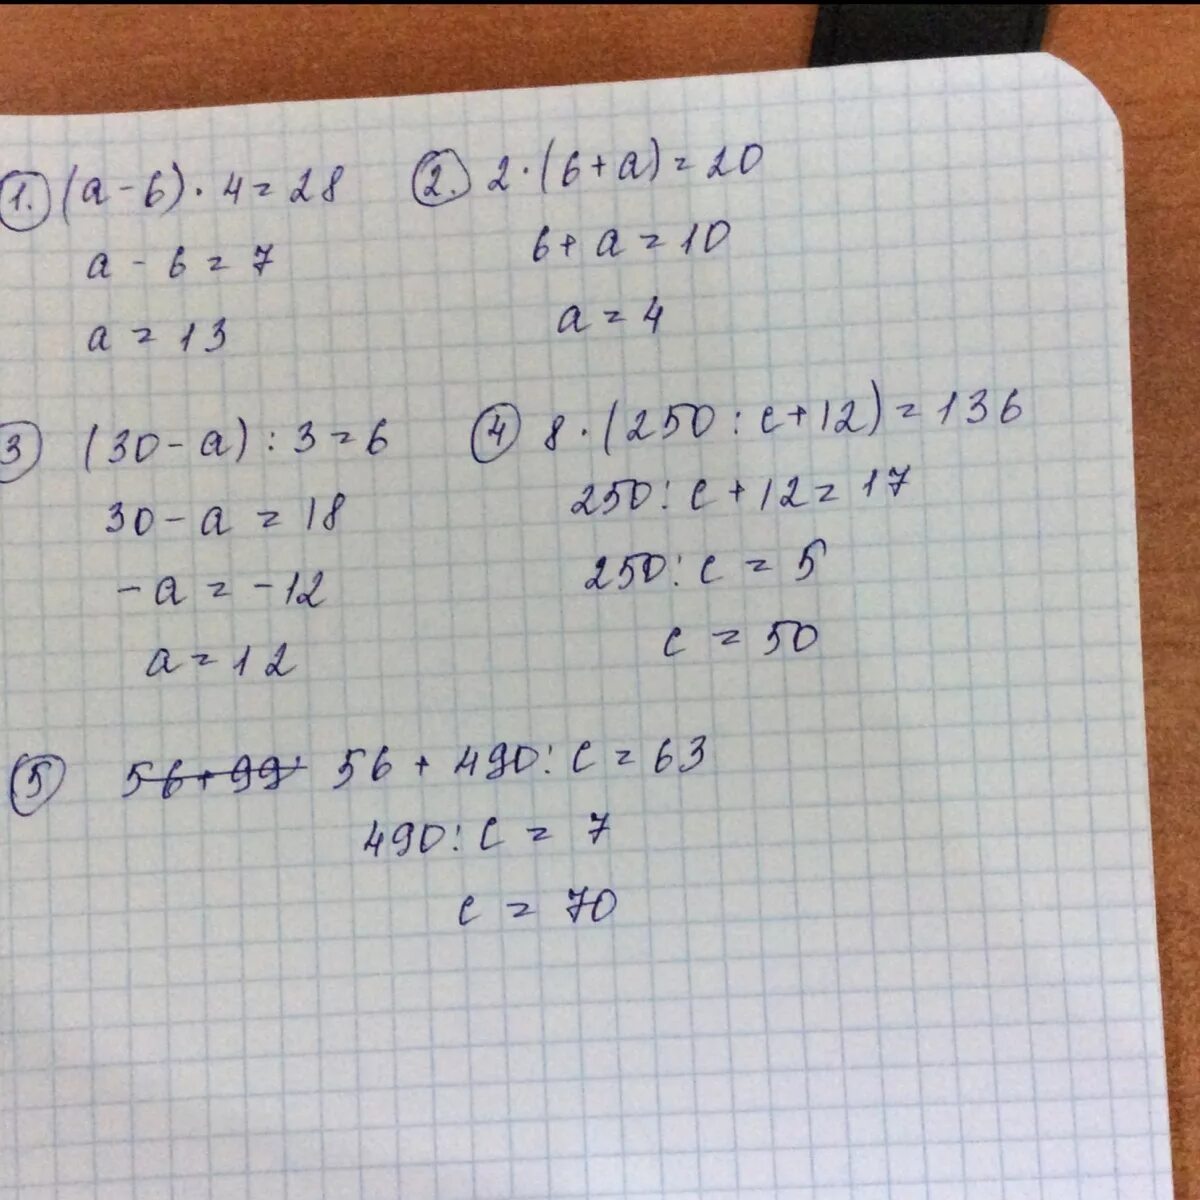 1. (a - 6) · 4 = 28
a - 6 = 7
a = 13
2. 2 · (6 + a) = 20
6 + a = 10
a = 4
3 (30 - a) : 3 = 6
30 - a = 18
-a = -12
a = 12
4 8 · (250 : c + 12) = 136
250 : c + 12 = 17
250 : c = 5
c = 50
5 56 + 99 56 + 490 : c = 63
490 : c = 7
c = 70